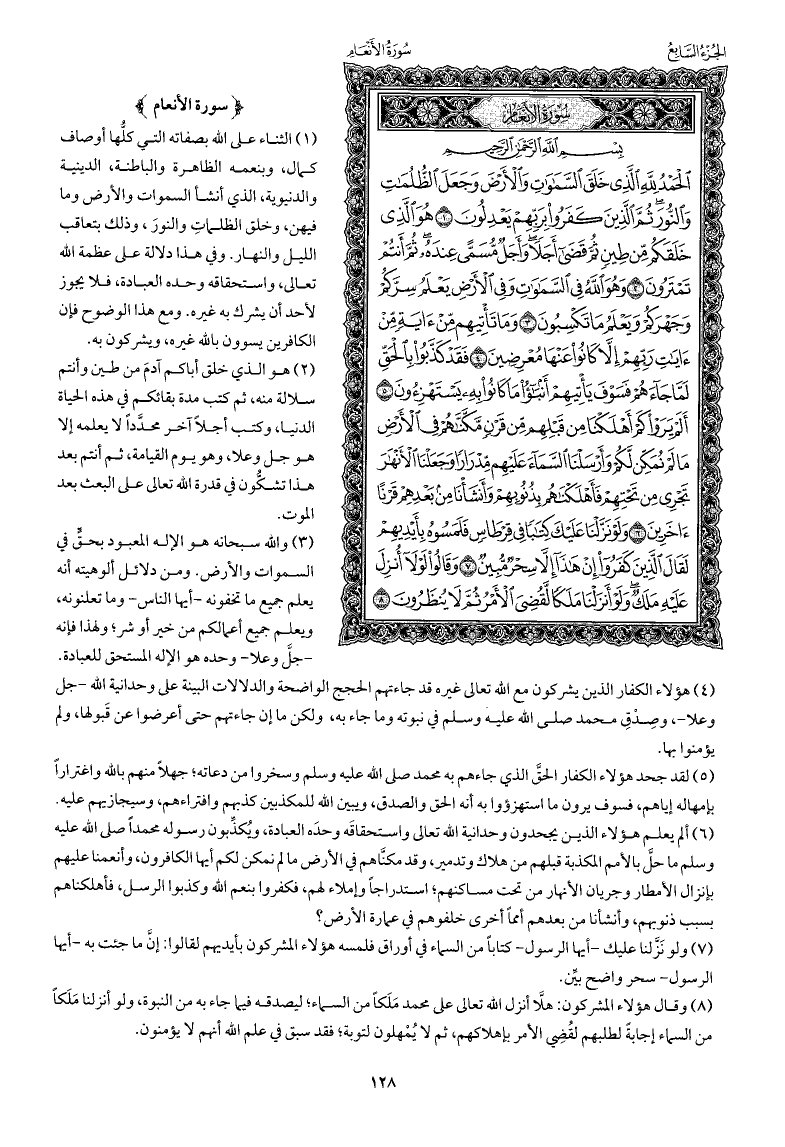 الجزء السابع
سورة الأنعام
سُورَةُ الأَنْعَامِ
بِسْمِ اللَّهِ الرَّحْمَنِ الرَّحِيمِ
الْحَمْدُ لِلَّهِ الَّذِي خَلَقَ السَّمَاوَاتِ وَالْأَرْضَ وَجَعَلَ الظُّلُمَاتِ
وَالنُّورَ ثُمَّ الَّذِينَ كَفَرُوا بِرَبِّهِمْ يَعْدِلُونَ ١ هُوَ الَّذِي
خَلَقَكُم مِّن طِينٍ ثُمَّ قَضَىٰ أَجَلًا وَأَجَلٌ مُّسَمًّى عِندَهُ ثُمَّ أَنتُمْ
تَمْتَرُونَ ٢ وَهُوَ اللَّهُ فِي السَّمَاوَاتِ وَفِي الْأَرْضِ يَعْلَمُ سِرَّكُمْ
وَجَهْرَكُمْ وَيَعْلَمُ مَا تَكْسِبُونَ ٣ وَمَا تَأْتِيهِم مِّنْ ءَايَةٍ مِّنْ
ءَايَاتِ رَبِّهِمْ إِلَّا كَانُوا عَنْهَا مُعْرِضِينَ ٤ فَقَدْ كَذَّبُوا بِالْحَقِّ
لَمَّا جَاءَهُمْ فَسَوْفَ يَأْتِيهِمْ أَنبَاؤُا مَا كَانُوا بِهِ يَسْتَهْزِءُونَ ٥
أَلَمْ يَرَوْا كَمْ أَهْلَكْنَا مِن قَبْلِهِم مِّن قَرْنٍ مَّكَّنَّاهُمْ فِي الْأَرْضِ
مَا لَمْ نُمَكِّن لَّكُمْ وَأَرْسَلْنَا السَّمَاءَ عَلَيْهِم مِّدْرَارًا وَجَعَلْنَا الْأَنْهَارَ
تَجْرِي مِن تَحْتِهِمْ فَأَهْلَكْنَاهُم بِذُنُوبِهِمْ وَأَنشَأْنَا مِن بَعْدِهِمْ قَرْنًا
ءَاخَرِينَ ٦ وَلَوْ نَزَّلْنَا عَلَيْكَ كِتَابًا فِي قِرْطَاسٍ فَلَمَسُوهُ بِأَيْدِيهِمْ
لَقَالَ الَّذِينَ كَفَرُوا إِنْ هَٰذَا إِلَّا سِحْرٌ مُّبِينٌ ٧ وَقَالُوا لَوْلَا أُنزِلَ
عَلَيْهِ مَلَكٌ وَلَوْ أَنزَلْنَا مَلَكًا لَّقُضِيَ الْأَمْرُ ثُمَّ لَا يُنظَرُونَ ٨
﴿ سورة الأنعام ﴾
(١) الثناء على الله بصفاته التي كلُّها أوصاف
كمال، وبنعمه الظاهرة والباطنة، الدينية
والدنيوية، الذي أنشأ السموات والأرض وما
فيهن، وخلق الظلماتِ والنورَ، وذلك بتعاقب
الليل والنهار. وفي هذا دلالة على عظمة الله
تعالى، واستحقاقه وحده العبادة، فلا يجوز
لأحد أن يشرك به غيره. ومع هذا الوضوح فإن
الكافرين يسوون بالله غيره، ويشركون به.
(٢) هو الذي خلق أباكم آدمَ من طين وأنتم
سلالة منه، ثم كتب مدة بقائكم في هذه الحياة
الدنيا، وكتب أجلاً آخر محدَّداً لا يعلمه إلا
هو جل وعلا، وهو يوم القيامة، ثم أنتم بعد
هذا تشكُّون في قدرة الله تعالى على البعث بعد
الموت.
(٣) والله سبحانه هو الإله المعبود بحقٍّ في
السموات والأرض. ومن دلائل ألوهيته أنه
يعلم جميع ما تخفونه -أيها الناس- وما تعلنونه،
ويعلم جميع أعمالكم من خير أو شر؛ ولهذا فإنه
-جلَّ وعلا- وحده هو الإله المستحق للعبادة.
(٤) هؤلاء الكفار الذين يشركون مع الله تعالى غيره قد جاءتهم الحجج الواضحة والدلالات البينة على وحدانية الله -جل
وعلا-، وصِدْقِ محمد صلى الله عليه وسلم في نبوته وما جاء به، ولكن ما إن جاءتهم حتى أعرضوا عن قَبولها، ولم
يؤمنوا بها.
(٥) لقد جحد هؤلاء الكفار الحقَّ الذي جاءهم به محمد صلى الله عليه وسلم وسخروا من دعاته؛ جهلاً منهم بالله واغتراراً
بإمهاله إياهم، فسوف يرون ما استهزؤوا به أنه الحق والصدق، ويبين الله للمكذبين كذبهم وافتراءهم، وسيجازيهم عليه.
(٦) ألم يعلم هؤلاء الذين يجحدون وحدانية الله تعالى واستحقاقَه وحدَه العبادة، ويُكذِّبون رسوله محمداً صلى الله عليه
وسلم ما حلَّ بالأمم المكذبة قبلهم من هلاك وتدمير، وقد مكنَّاهم في الأرض ما لم نمكن لكم أيها الكافرون، وأنعمنا عليهم
بإنزال الأمطار وجريان الأنهار من تحت مساكنهم؛ استدراجاً وإملاء لهم، فكفروا بنعم الله وكذبوا الرسل، فأهلكناهم
بسبب ذنوبهم، وأنشأنا من بعدهم أمماً أخرى خلفوهم في عمارة الأرض؟
(٧) ولو نَزَّلنا عليك -أيها الرسول- كتاباً من السماء في أوراق فلمسه هؤلاء المشركون بأيديهم لقالوا: إنَّ ما جئت به -أيها
الرسول- سحر واضح بيِّن.
(٨) وقال هؤلاء المشركون: هلَّا أنزل الله تعالى على محمد مَلَكاً من السماء؛ ليصدقه فيما جاء به من النبوة، ولو أنزلنا مَلَكاً
من السماء إجابةً لطلبهم لقُضِي الأمر بإهلاكهم، ثم لا يُمْهلون لتوبة؛ فقد سبق في علم الله أنهم لا يؤمنون.
١٢٨